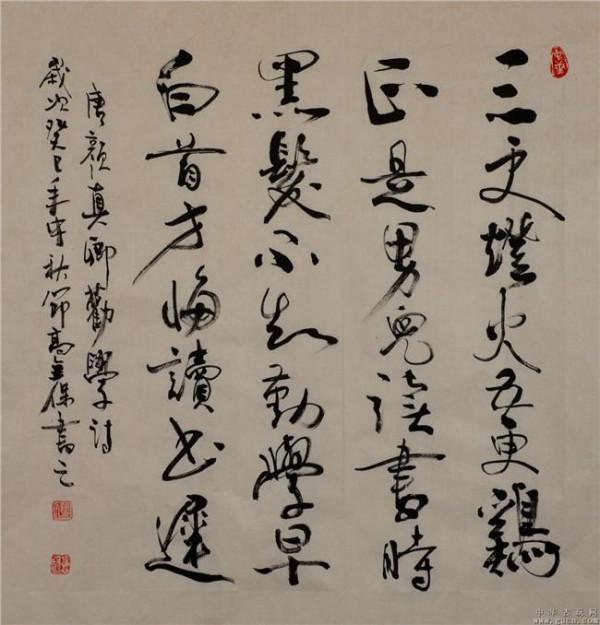 三更燈火五更鷄
正是男兒讀書時
黑髮不知勤學早
白首方悔讀書遲
唐顔真卿勸學詩
歲次癸巳年中秋節高金保書之
中华古玩网
www.gucn.com